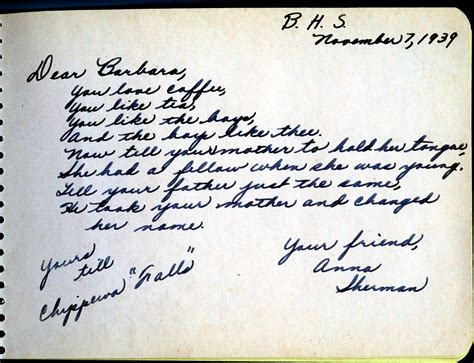 B. H. S.
November 7, 1939
Dear Barbara,
You love coffee,
You like tea,
You like the boys,
And the boys like thee.
Now tell your mother to hold her tongue,
She had a fellow when she was young.
Tell your father just the same,
He took your mother and changed
her name.
Yours
till
Chippewa "Falls"
Your friend,
Anna
Sherman